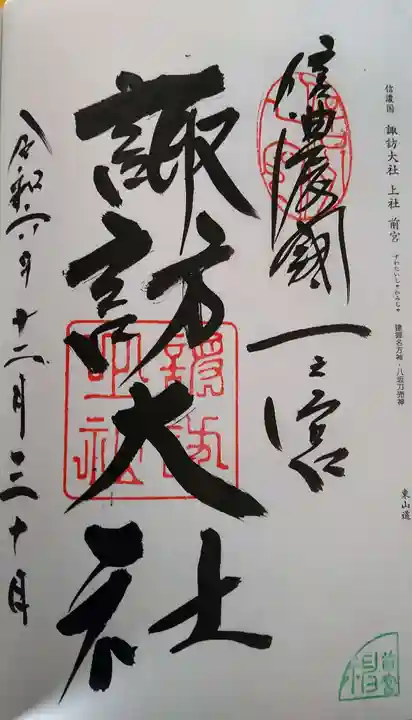 信濃国 諏訪大社 上社 前宮
すわたいしゃかみしゃ
建御名方神・八坂刀売神
東山道
信濃國一之宮
諏訪大社
令和六年十二月三十日
諏訪
上社
前宮